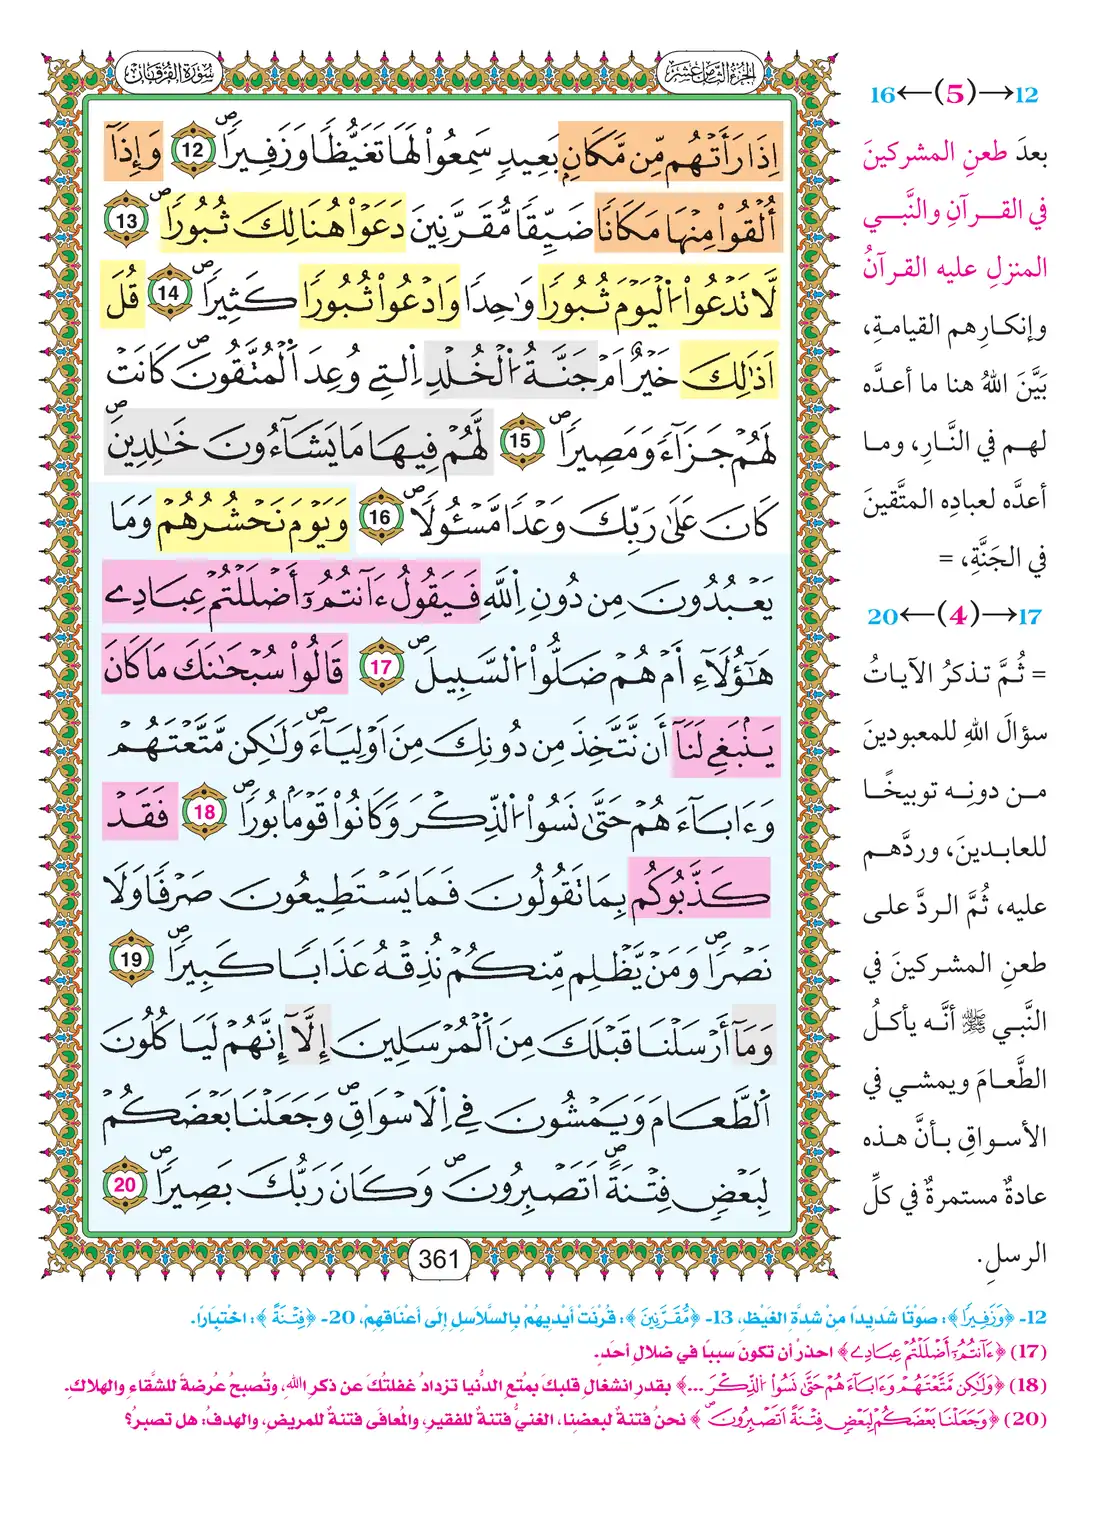 سورة الفرقان
الجزء الثامن عشر
إِذَا رَأَتْهُم مِّن مَّكَانٍۢ بَعِيدٖ سَمِعُواْ لَهَا تَغَيُّظٗا وَزَفِيرٗاۖ 12 وَإِذَآ
أُلْقُواْ مِنْهَا مَكَانٗا ضَيِّقٗا مُّقَرَّنِينَ دَعَوْاْ هُنَالِكَ ثُبُورٗاۖ 13
لَّا تَدْعُواْ اُ۬لْيَوْمَ ثُبُورٗا وَٰحِدٗا وَادْعُواْ ثُبُورٗا كَثِيرٗاۖ 14 قُلَ
اَذَٰلِكَ خَيْرٌ اَمْ جَنَّةُ اُ۬لْخُلْدِ اِ۬لتِے وُعِدَ اَ۬لْمُتَّقُونَۖ كَانَتْ
لَهُمْ جَزَآءٗ وَمَصِيرٗاۖ 15 لَّهُمْ فِيهَا مَا يَشَآءُونَ خَٰلِدِينَۖ
كَانَ عَلَىٰ رَبِّكَ وَعْدٗا مَّسْـُٔولٗاۖ 16 وَيَوْمَ نَحْشُرُهُمْ وَمَا
يَعْبُدُونَ مِن دُونِ اِ۬للَّهِ فَيَقُولُ ءَآنتُمُۥٓ أَضْلَلْتُمْ عِبَادِے
هَٰٓؤُلَآءِ اَمْ هُمْ ضَلُّواْ اُ۬لسَّبِيلَۖ 17 قَالُواْ سُبْحَٰنَكَ مَا كَانَ
يَنۢبَغِے لَنَآ أَن نَّتَّخِذَ مِن دُونِكَ مِنَ اَوْلِيَآءَۖ وَلَٰكِن مَّتَّعْتَهُمْ
وَءَابَآءَهُمْ حَتَّىٰ نَسُواْ اُ۬لذِّكْرَ وَكَانُواْ قَوْمَۢا بُورٗاۖ 18 فَقَدْ
كَذَّبُوكُم بِمَا تَقُولُونَ فَمَا يَسْتَطِيعُونَ صَرْفٗا وَلَا
نَصْرٗاۖ وَمَنْ يَّظْلِم مِّنكُمْ نُذِقْهُ عَذَابٗا كَبِيرٗاۖ 19
وَمَآ أَرْسَلْنَا قَبْلَكَ مِنَ اَ۬لْمُرْسَلِينَ إِلَّآ إِنَّهُمْ لَيَاكُلُونَ
اَ۬لطَّعَامَ وَيَمْشُونَ فِے اِ۬لَاسْوَاقِۖ وَجَعَلْنَا بَعْضَكُمْ
لِبَعْضٖ فِتْنَةًۖ اَتَصْبِرُونَۖ وَكَانَ رَبُّكَ بَصِيرٗاۖ 20
361
12→(5)←16
بعدَ طعنِ المشركينَ
في القـرآنِ والنَّبـي
المنزلِ عليه القـرآنُ
وإنكـارِهم القيامـةِ،
بَيَّنَ اللهُ هنا ما أعـدَّه
لهـم في النَّـارِ، ومـا
أعدَّه لعبادِه المتَّقينَ
في الجَنَّةِ، =
17→(4)←20
= ثُـمَّ تـذكرُ الآيـاتُ
سؤالَ اللهِ للمعبودينَ
مـن دونِـه توبيخًـا
للعابـدينَ، وردَّهـم
عليه، ثُمَّ الـردَّ علـى
طعنِ المشـركينَ في
النَّبـي ﷺ أنَّـه يأكـلُ
الطَّعـامَ ويمشـي في
الأسـواقِ بـأنَّ هـذه
عادةٌ مستمرةٌ في كلِّ
الرسلِ.
12- ﴿وَزَفِيرٗا﴾: صَوْتًا شَدِيدًا مِنْ شِدَّةِ الغَيْظِ، 13- ﴿مُّقَرَّنِينَ﴾: قُرِنَتْ أَيْدِيهُمْ بِالسَّلَاسِلِ إلَى أعْنَاقِهِمْ، 20- ﴿فِتْنَةً﴾: اخْتِبَارًا.
(17) ﴿ءَآنتُمُۥٓ أَضْلَلْتُمْ عِبَادِے﴾ احذرْ أن تكونَ سببًا في ضلالِ أحدٍ.
(18) ﴿وَلَٰكِن مَّتَّعْتَهُمْ وَءَابَآءَهُمْ حَتَّىٰ نَسُواْ اُ۬لذِّكْرَ ...﴾ بقدرِ انشغالِ قلبِكَ بمُتعِ الدُّنيا تزدادُ غفلتُكَ عن ذكرِ اللهِ، وتُصبحُ عُرضةً للشَّقاءِ والهلاكِ.
(20) ﴿وَجَعَلْنَا بَعْضَكُمْ لِبَعْضٖ فِتْنَةً اَتَصْبِرُونَۖ﴾ نحنُ فتنةٌ لبعضِنا، الغنيُّ فتنةٌ للفقيرِ، والمُعافَى فتنةٌ للمريضِ، والهدفُ: هل تصبرُ؟